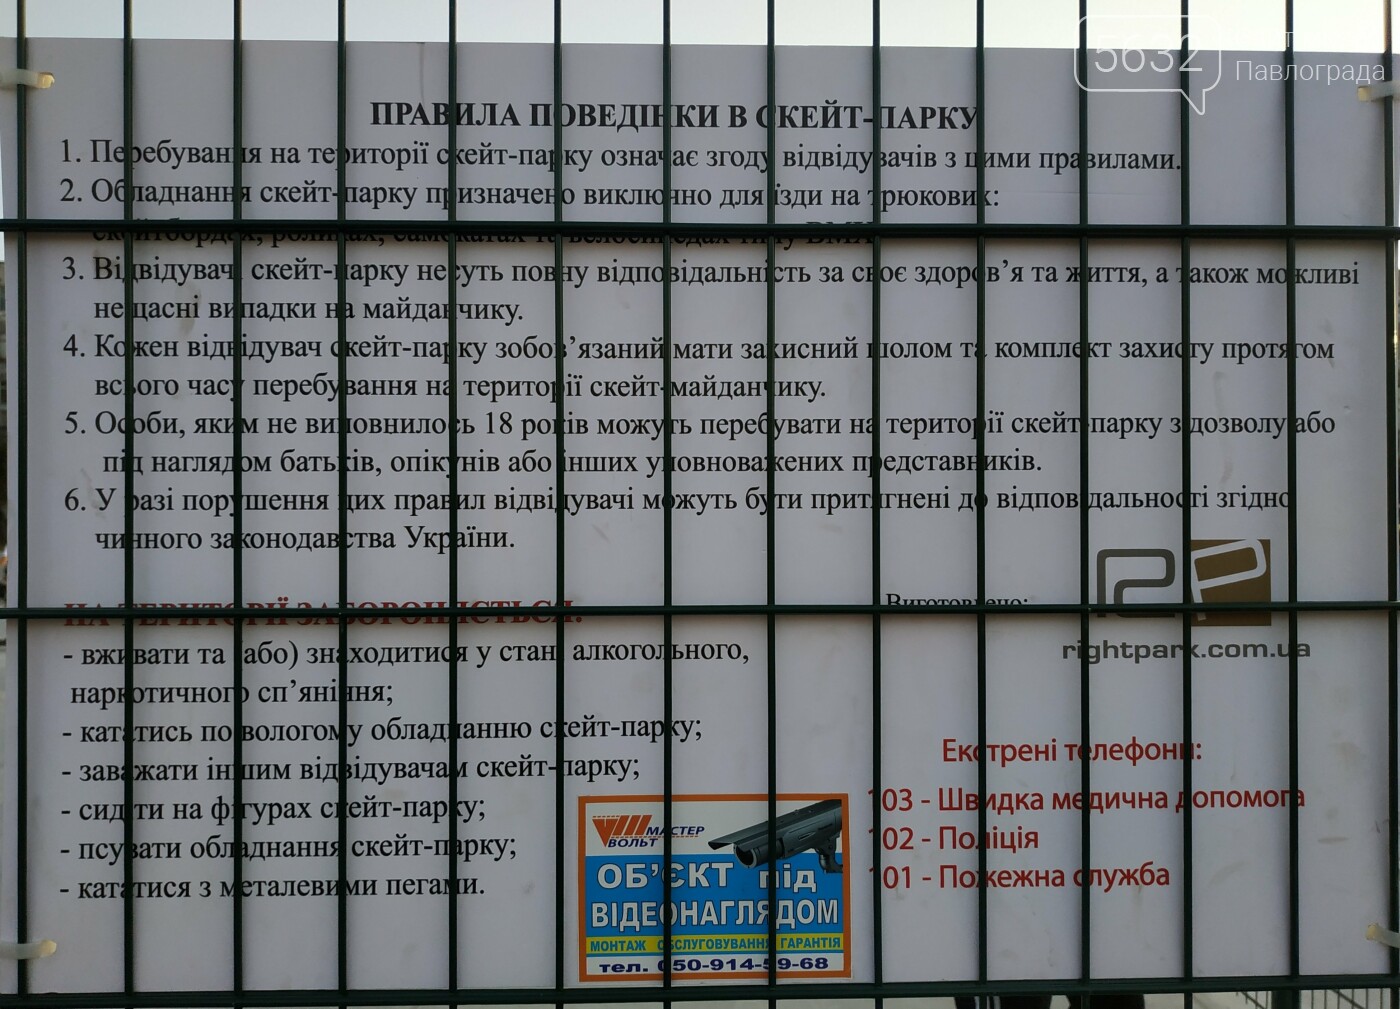 5632
Павлограда
ПРАВИЛА ПОВЕДІНКИ В СКЕЙТ-ПАРКУ
1. Перебування на території скейт-парку означає згоду відвідувачів з цими правилами.
2. Обладнання скейт-парку призначено виключно для їзди на трюкових:
скейтбордах, роликах, самокатах та велосипедах типу BMX
3. Відвідувачі скейт-парку несуть повну відповідальність за своє здоров’я та життя, а також можливі
нещасні випадки на майданчику.
4. Кожен відвідувач скейт-парку зобов’язаний мати захисний шолом та комплект захисту протягом
всього часу перебування на території скейт-майданчику.
5. Особи, яким не виповнилось 18 років можуть перебувати на території скейт-парку з дозволу або
під наглядом батьків, опікунів або інших уповноважених представників.
6. У разі порушення цих правил відвідувачі можуть бути притягнені до відповідальності згідно
чинного законодавства України.
НА ТЕРИТОРІЇ ЗАБОРОНЯЄТЬСЯ:
- вживати та (або) знаходитися у стані алкогольного,
наркотичного сп’яніння;
- кататись по вологому обладнанню скейт-парку;
- заважати іншим відвідувачам скейт-парку;
- сидіти на фігурах скейт-парку;
- псувати обладнання скейт-парку;
- кататися з металевими пегами.
Виготовлено:
rightpark.com.ua
Екстрені телефони:
103 - Швидка медична допомога
102 - Поліція
101 - Пожежна служба
МАСТЕР
ВОЛЬТ
ОБ’ЄКТ під
ВІДЕОНАГЛЯДОМ
МОНТАЖ ОБСЛУГОВУВАННЯ ГАРАНТІЯ
тел. 050-914-59-68